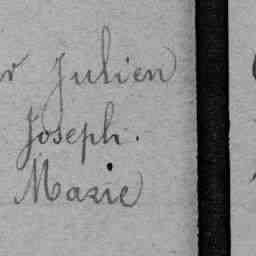 Julien
Joseph.
Marie